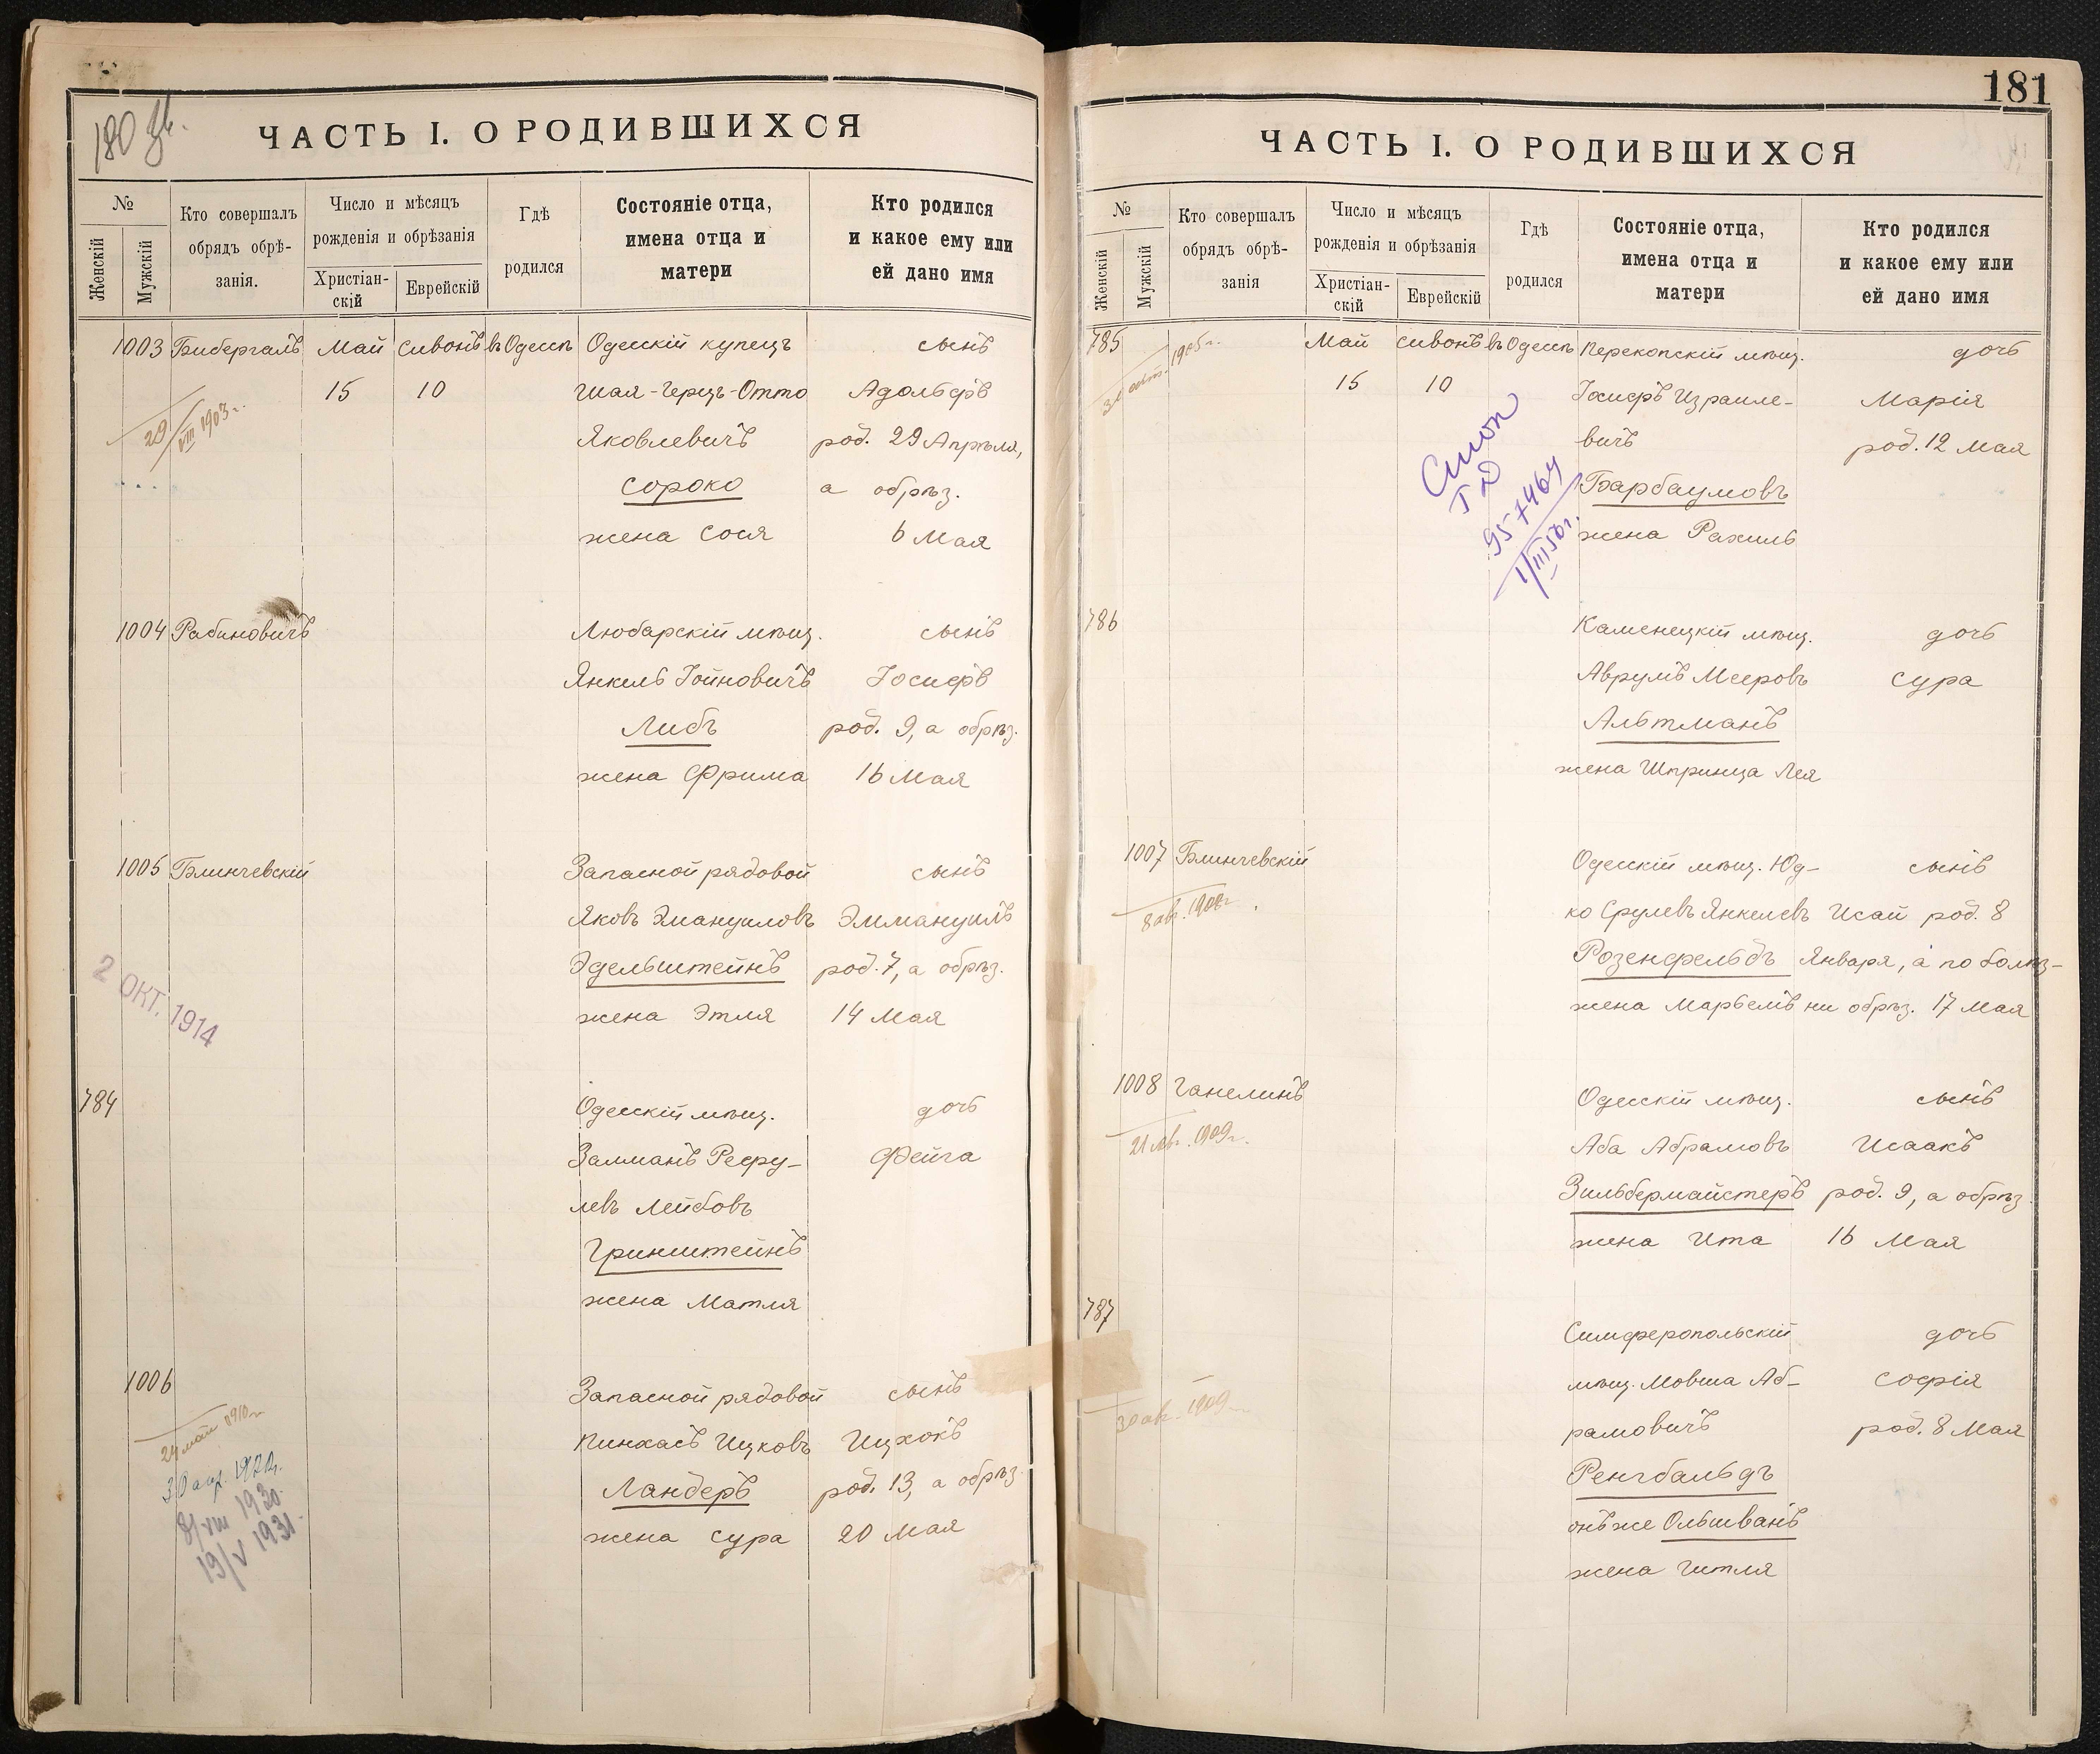 180 об.
ЧАСТЬ I. О РОДИВШИХСЯ
№
Женскій
Мужскій
Кто совершалъ
обрядъ обрѣ-
занія.
Число и мѣсяцъ
рожденія и обрѣзанія
Христіан-
скій
Еврейскій
Гдѣ
родился
Состояніе отца,
имена отца и
матери
Кто родился
и какое ему или
ей дано имя
1003 Бибергалъ Май Сивонъ въ Одессѣ Одесскій купецъ сынъ
15 10 Шая-Герцъ-Отто Адольфъ
29/VIII 1903 г. Яковлевичъ род. 29 Апрѣля,
Сороко а обрѣз.
жена Сося 6 Мая
1004 Рабиновичъ Любарскій мѣщ. сынъ
Янкель Іойновичъ Іосифъ
Либъ род. 9, а обрѣз.
жена Фрима 16 Мая
1005 Блинчевскій Запасной рядовой сынъ
Яковъ Эмануиловъ Эммануилъ
Эдельштейнъ род. 7, а обрѣз.
жена Этля 14 Мая
2 ОКТ. 1914
784 Одесскій мѣщ. дочь
Залманъ Ресру- Фейга
левъ Лейбовъ
Гринштейнъ
жена Матля
1006 Запасной рядовой сынъ
24 май 1910 г.
Пинхасъ Ицковъ Ицхокъ
30 апр. 192
8/VIII 1930.
Ландеръ род. 13, а обрѣз.
19/V 1931.
жена Сура 20 Мая
181
ЧАСТЬ I. О РОДИВШИХСЯ
№
Женскій
Мужскій
Кто совершалъ
обрядъ обрѣ-
занія
Число и мѣсяцъ
рожденія и обрѣзанія
Христіан-
скій
Еврейскій
Гдѣ
родился
Состояніе отца,
имена отца и
матери
Кто родился
и какое ему или
ей дано имя
785 Май Сивонъ въ Одессѣ Перекопскій мѣщ. дочь
1905 г.
15 10 Іосифъ Израиле- Марія
вичъ род. 12 Мая
957464
1/III 50 г.
Барбаумовъ
жена Рахиль
786 Каменецкій мѣщ. дочь
Аврумъ Мееровъ Сура
Альтманъ
жена Шпринца Лея
1007 Блинчевскій Одесскій мѣщ. Юд- сынъ
ко Срулевъ Янкелевъ Исай род. 8
Розенфельдъ Января, а по болѣз-
жена Марьемъ ни обрѣз. 17 Мая
1008 Ганелинъ Одесскій мѣщ. сынъ
1909 г.
Аба Абрамовъ Исаакъ
Зильбермайстеръ род. 9, а обрѣз.
жена Ита 16 Мая
787 Симферопольскій дочь
мѣщ. Мовша Аб- Софія
1909
рамовичъ род. 8 Мая
Ренгбальдъ
онъ же Ольшванъ
жена Гитля